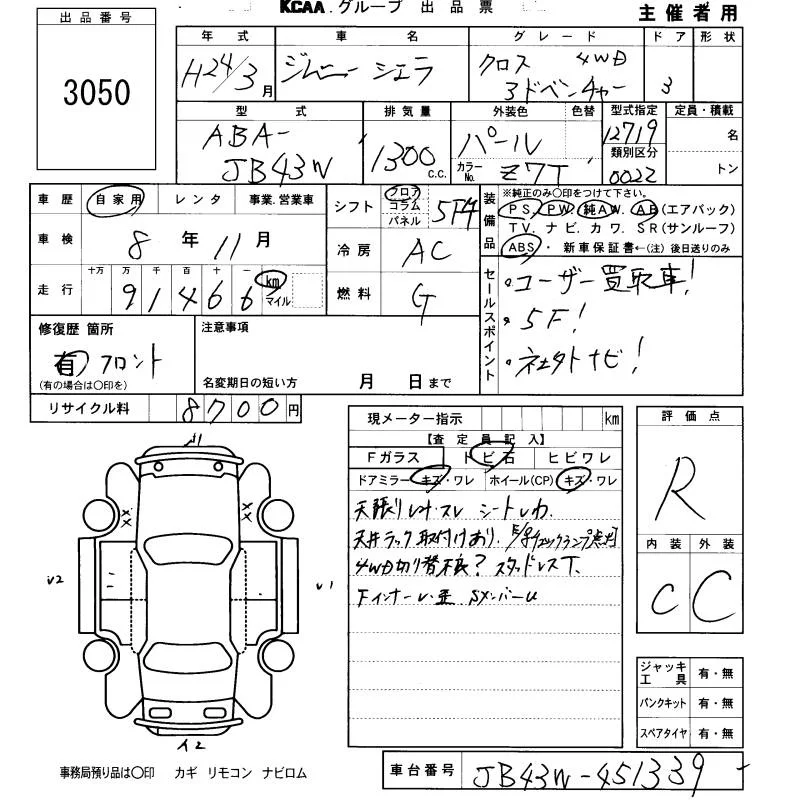 KCAA.グループ 出品票
主催者用
出品番号
3050
年式 車名 グレード ドア 形状
H24/3月 ジムニー シエラ クロス 4WD
アドベンチャー 3
型式 排気量 外装色 色替 型式指定 定員・積載
ABA-
JB43W 1300 C.C. パール 12719 名
類別区分
カラーNo. Z7T 0022 トン
車歴 自家用 レンタ 事業.営業車
シフト フロア コラム パネル 5F4
装備品 ※純正のみ○印をつけて下さい。
PS. PW. 純AW. AB(エアバック)
TV. ナビ. カワ. SR(サンルーフ)
ABS・ 新車保証書←(注) 後日送りのみ
車検 8年11月
冷房 AC
走行 十万 万 千 百 十 一
91466 km マイル
燃料 G
セールスポイント
・ユーザー買取車!
・5F!
・社外ナビ!
修復歴 箇所
有 フロント
(有の場合は○印を)
注意事項
名変期日の短い方 月 日まで
リサイクル料 8700円
現メーター指示 km
【査定員記入】
Fガラス トビ石 ヒビワレ
ドアミラー キズ・ワレ ホイール(CP) キズ・ワレ
天張りシミ・スレ シートシワ
天井ラック取付けあり. E/gチェックランプ点灯
4WD切り替 ? スタッドレスT.
FインナーU・歪 SメンバーU
評価点
R
内装 外装
C C
U1
U2
U1
A2
ジャッキ工具 有・無
パンクキット 有・無
スペアタイヤ 有・無
事務局預り品は○印 カギ リモコン ナビロム
車台番号 JB43W-451339